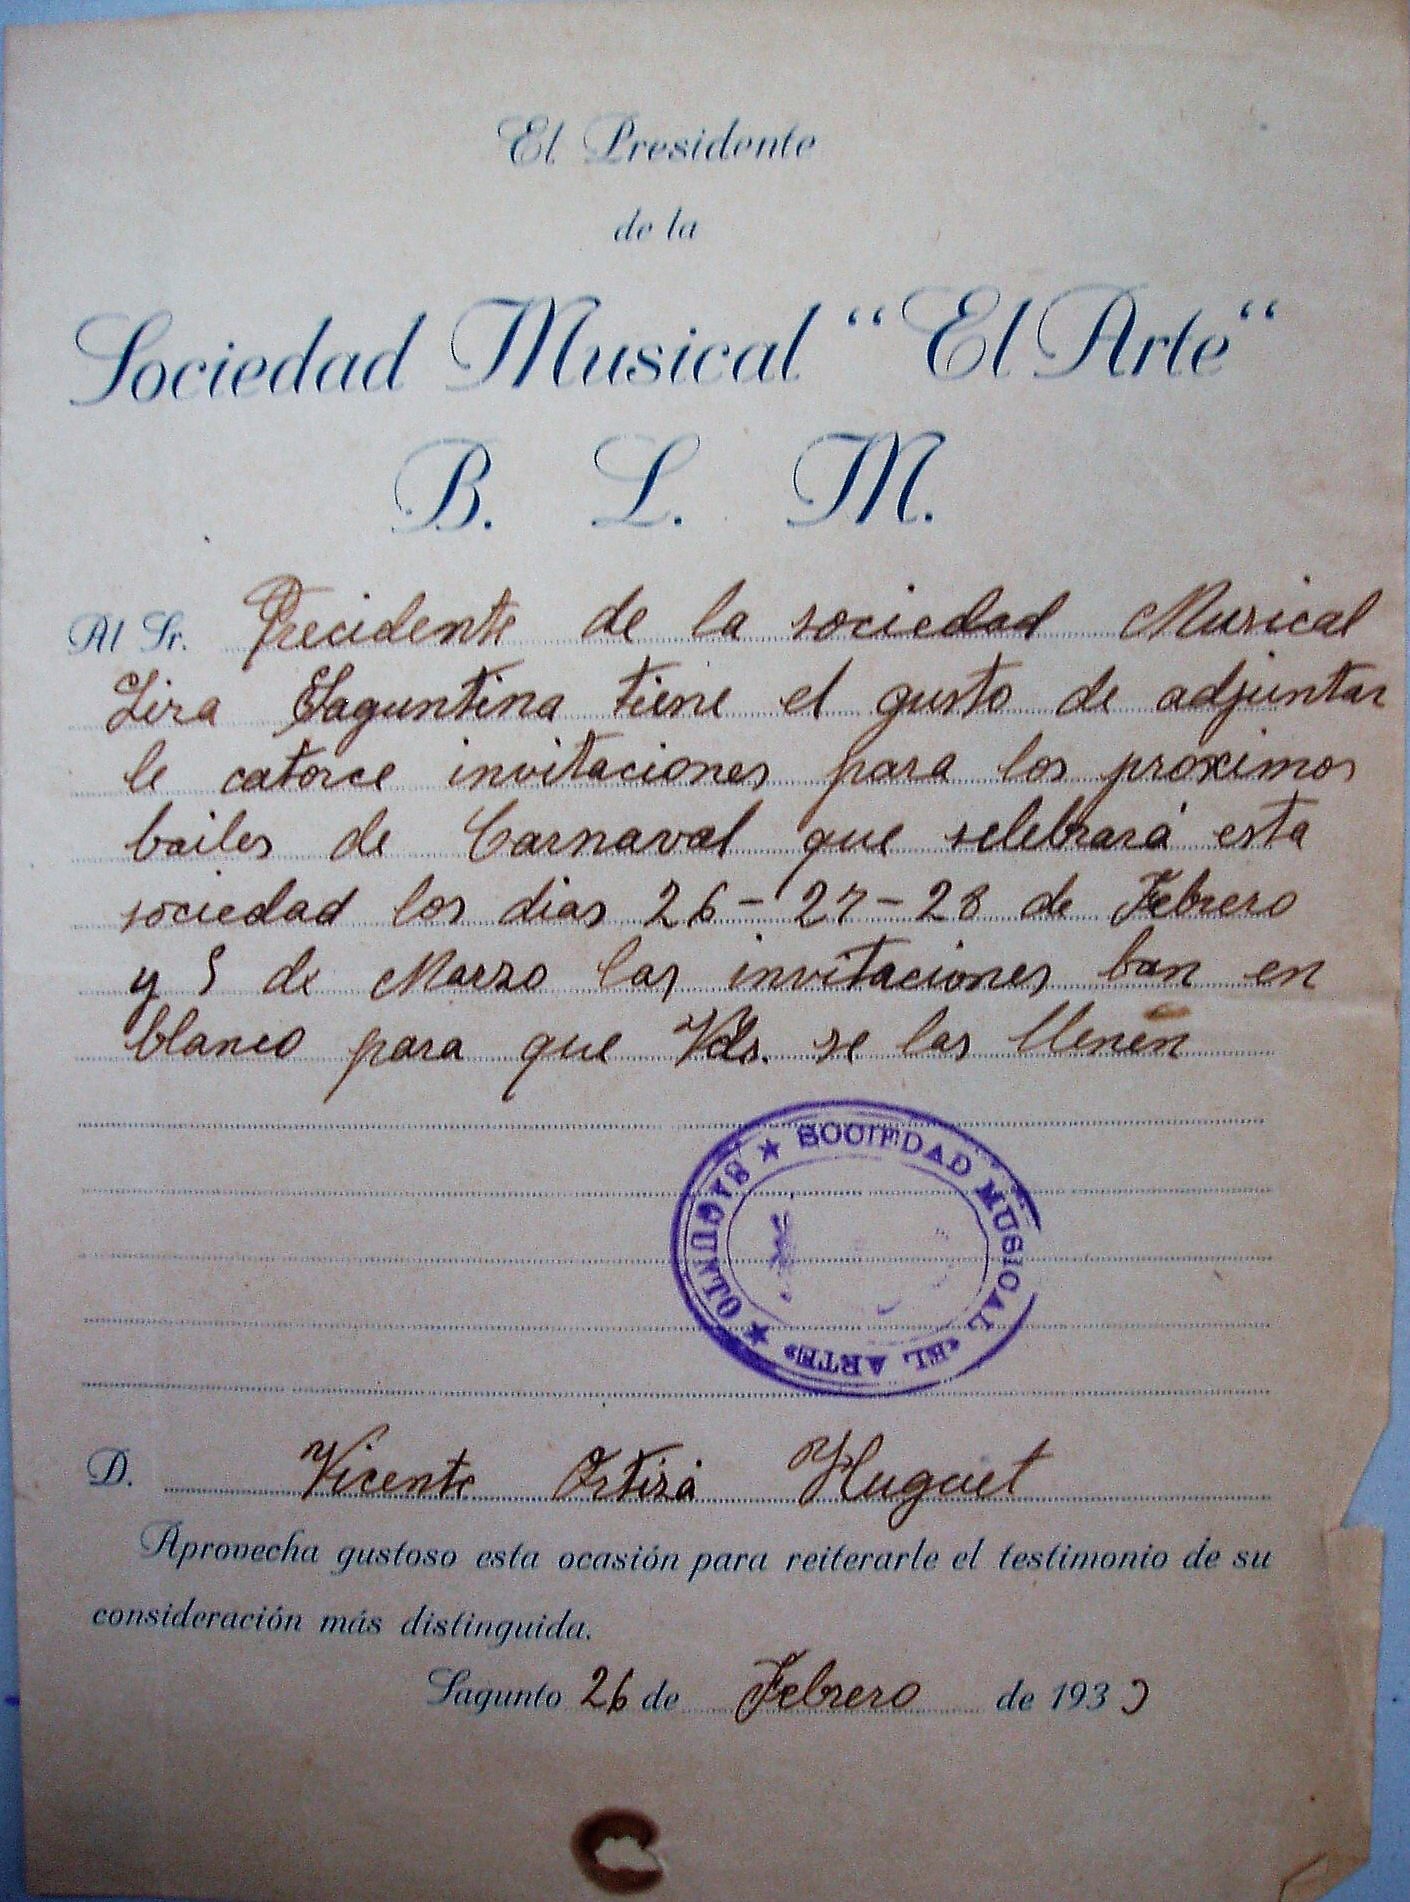 El Presidente
de la
Sociedad Musical “El Arte“
B. L. M.
Al Sr. Precidente de la sociedad Musical
Lira Saguntina tiene el gusto de adjuntar
le catorce invitaciones para los proximos
bailes de Carnaval que selebrará esta
sociedad los dias 26-27-28 de Febrero
y 5 de Marzo las invitaciones ban en
blanco para que Vds. se las llenen
★ SOCIEDAD MUSICAL «EL ARTE» ★ SAGUNTO
D. Vicente Ortizá Huguet
Aprovecha gustoso esta ocasión para reiterarle el testimonio de su
consideración más distinguida.
Sagunto 26 de Febrero de 1933